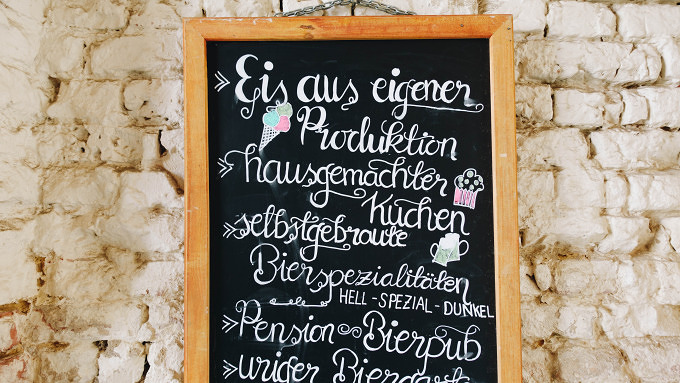 » Eis aus eigener
Produktion
» hausgemachter
Kuchen
» selbstgebraute
Bierspezialitäten
HELL - SPEZIAL - DUNKEL
» Pension ∞ Bierpub
» uriger